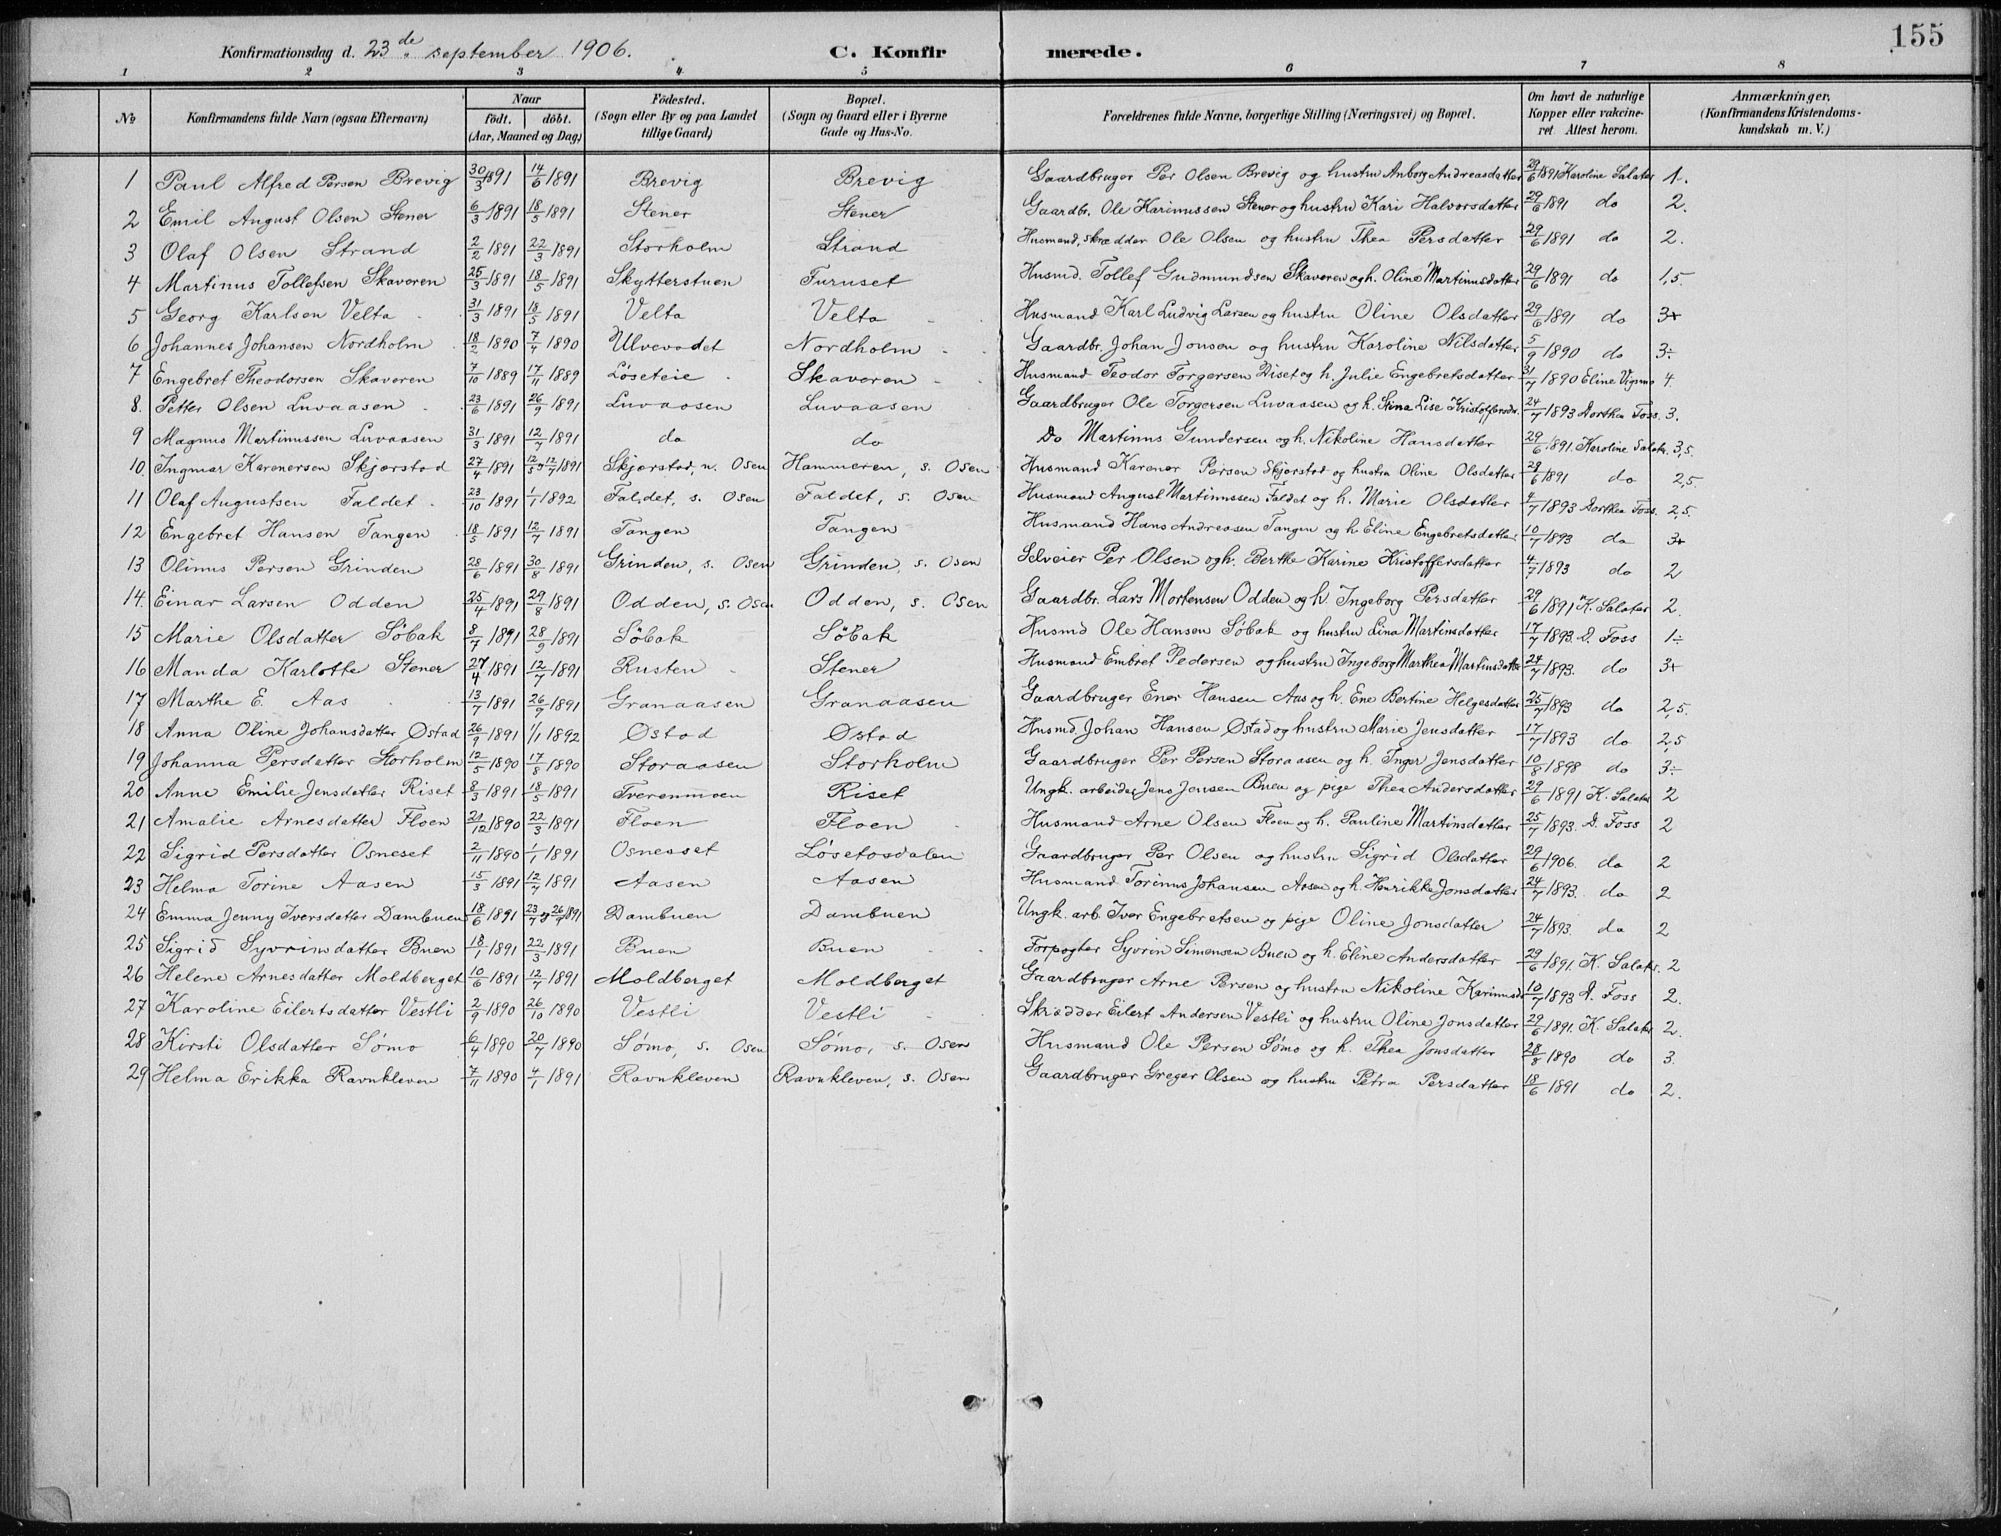 155
Konfirmationsdag d. 23de september 1906. C. Konfirmerede.
1 2 3 4 5 6 7 8
No Konfirmandens fulde Navn (ogsaa Efternavn) Naar födt. döbt. (Aar, Maaned og Dag) Födested. (Sogn eller By og paa Landet tillige Gaard) Bopæl. (Sogn og Gaard eller i Byerne Gade og Hus-No. Forældrenes fulde Navne, borgerlige Stilling (Næringsvei) og Bopæl. Om havt de naturlige Kopper eller vakcineret. Attest herom. Anmærkninger, (Konfirmandens Kristendomskundskab m. V.)
1 Paul Alfred Persen Brevig 30/3 1891 14/6 1891 Brevig Brevig Gaardbruger Per Olsen Brevig og hustru Anborg Andreasdatter 29/6 1891 Karoline Salater 1.
2 Emil August Olsen Stener 6/3 1891 18/5 1891 Stener Stener Gaardbr. Ole Karinussen Stener og hustru Kari Halvorsdatter 29/6 1891 do 2.
3 Olaf Olsen Strand 2/2 1891 22/3 1891 Storholm Strand Husmand, skrædder Ole Olsen og hustru Thea Persdatter 29/6 1891 do 2.
4 Martinus Tollefsen Skaveren 25/3 1891 18/5 1891 Skytterstuen Furuset Husmd. Tollef Gudmundsen Skaveren og h. Oline Martinusdatter 29/6 1891 do 1,5.
5 Georg Karlsen Velta 31/3 1891 18/5 1891 Velta Velta Husmand Karl Ludvig Larsen og hustru Oline Olsdatter 29/6 1891 do 3+
6 Johannes Johansen Nordholm 18/2 1890 7/4 1890 Ulvevadet Nordholm Gaardbr. Johan Jonsen og hustru Karoline Nilsdatter 5/9 1890 do 3÷
7 Engebret Theodorsen Skaveren 7/10 1889 17/11 1889 Löseteie Skaveren Husmand Teodor Torgersen Diset og h. Julie Engebretsdatter 31/7 1890 Eline Vignmo 4.
8. Petter Olsen Luvaasen 23/6 1891 26/9 1891 Luvaasen Luvaasen Gaardbruger Ole Torgersen Luvaasen og h. Stina Lise Kristoffersdr. 24/7 1893 Dorthea Foss. 3.
9 Magnus Martinussen Luvaasen 31/3 1891 12/7 1891 do do Do Martinus Gundersen og h. Nikoline Hansdatter 29/6 1891. Karoline Salatr. 3,5.
10. Ingmar Karenersen Skjærstad 27/4 1891 12/5 og 12/7 1891 Skjærstad, n. Osen Hammeren, s. Osen Husmand Karenor Persen Skjærstad og hustru Oline Olsdatter 29/6 1891 do 2,5.
11 Olaf Augustsen Faldet 23/10 1891 1/1 1892 Faldet, s. Osen Faldet, s. Osen Husmand August Martinussen Faldet og h. Marie Olsdatter 4/7 1893 Dorthea Foss. 2,5.
12 Engebret Hansen Tangen 18/5 1891 12/7 1891 Tangen Tangen Husmand Hans Andreasen Tangen og h. Eline Engebretsdatter 10/7 1893 do 3+
13 Olinus Persen Grinden 28/6 1891 30/8 1891 Grinden, s. Osen Grinden, s. Osen Selveier Per Olsen og h. Berthe Karine Kristoffersdatter 4/7 1893 do 2
14. Einar Larsen Odden 25/4 1891 29/8 1891 Odden, s. Osen Odden, s. Osen Gaardbr. Lars Mortensen Odden og h. Ingeborg Persdatter 29/6 1891 K. Salater 2.
15 Marie Olsdatter Söbak 8/7 1891 28/9 1891 Söbak Söbak Husmd Ole Hansen Söbak og hustru Lina Martinsdatter 17/7 1893. D. Foss 1÷
16 Manda Karlotte Stener 27/4 1891 12/7 1891 Rusten Stener Husmand Embret Pedersen og hustru Ingeborg Marthea Martinsdatter 24/7 1893. do 3+
17 Marthe E. Aas 13/7 1891 26/9 1891 Granaasen Granaasen Gaardbruger Ener Hansen Aas og h. Ene Bertine Helgesdatter 25/7 1893 do 2,5.
18 Anna Oline Johansdatter Østad 26/9 1891 1/1 1892 Østad Østad Husmd. Johan Hansen Østad og hustru Marie Jensdatter 17/7 1893 do 2,5
19 Johanna Persdatter Storholm 12/5 1890 17/8 1890 Storaasen Storholm Gaardbruger Per Persen Storaasen og h. Inger Jensdatter 10/8 1898 do 3÷
20 Anne Emilie Jensdatter Riset 8/3 1891 18/5 1891 Tverenmoen Riset Ungk. arbeider Jens Jensen Buen og pige Thea Andersdatter 29/6 1891 K. Salater 2
21 Amalie Arnesdatter Floen 21/12 1890 22/3 1891 Floen Floen Husmand Arne Olsen Floen og h. Pauline Martinsdatter 25/7 1893. D. Foss 2
22 Sigrid Persdatter Osneset 2/11 1890 1/1 1891 Osnesset Løsetosdalen Gaardbruger Per Olsen og hustru Sigrid Olsdatter 29/6 1906. do 2
23 Helma Torine Aasen 15/3 1891 12/7 1891 Aasen Aasen Husmand Torinus Johansen Aasen og h. Henrikke Jonsdatter 24/7 1893. do 2
24 Emma Jenny Iversdatter Dambuen 18/6 1891 23/7 og 26/7 1891 Dambuen Dambuen Ungk. arb. Iver Engebretsen og pige Oline Jonsdatter 24/7 1893. do 2
25 Sigrid Syvrinsdatter Buen 18/1 1891 22/3 1891 Buen Buen Forpagter Syvrin Simensen Buen og h. Eline Andersdatter 29/6 1891. K. Salatr. 2
26 Helene Arnesdatter Moldberget 10/6 1891 12/7 1891 Moldberget Moldberget Gaardbruger Arne Persen og hustru Nikoline Karinusd. 10/7 1893 D. Foss 2.
27 Karoline Eilertsdatter Vestli 2/9 1890 26/10 1890 Vestli Vestli Skrædder Eilert Andersen Vestli og hustru Oline Jonsdatter 29/6 1891. K. Salater 2.
28 Kirsti Olsdatter Sømo 6/4 1890 20/7 1890 Sømo, s. Osen Sømo, s. Osen Husmand Ole Persen Sømo og h. Thea Jonsdatter 28/8 1890 do 3.
29 Helma Erikka Ravnkleven 7/11 1890 4/1 1891 Ravnkleven Ravnkleven, s. Osen Gaardbruger Greger Olsen og hustru Petra Persdatter 18/6 1891 do 2.